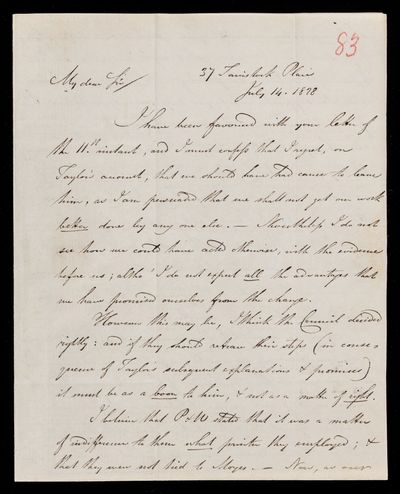 83
37 Tavistock Place
My dear Sir
July 14. 1828
I have been favoured with your letter of
the 11th instant, and I must confess that I regret, on
Taylor's account, that we should have had cause to leave
him, as I am persuaded that we shall not get our work
better done by any one else. — Nevertheless I do not
see how we could have acted otherwise, with the evidence
before us; altho' I do not expect all the advantages that
we have promised ourselves from the change.
However this may be, I think the Council decided
rightly: and if they should retrace their steps (in conse-
quence of Taylor's subsequent explanations & promises)
it must be as a boon to him, & not as a matter of right.
I believe that P & W stated that it was a matter
of indifference to them what printer they employed; &
that they were not tied to Moyes. — Now, as our